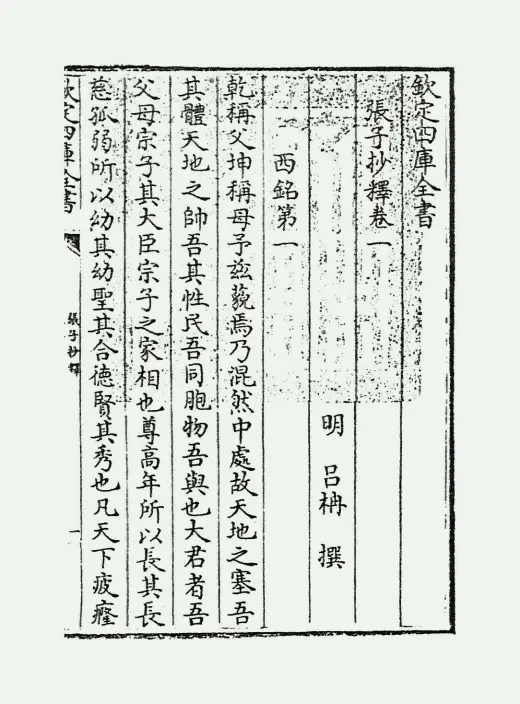 欽定四庫全書
張子抄釋卷一
明 呂柟 撰
西銘第一
乾稱父坤稱母予茲藐焉乃混然中處故天地之塞吾
其體天地之帥吾其性民吾同胞物吾與也大君者吾
父母宗子其大臣宗子之家相也尊高年所以長其長
慈孤弱所以幼其幼聖其合德賢其秀也凡天下疲癃
欽定四庫全書
張子抄釋
一